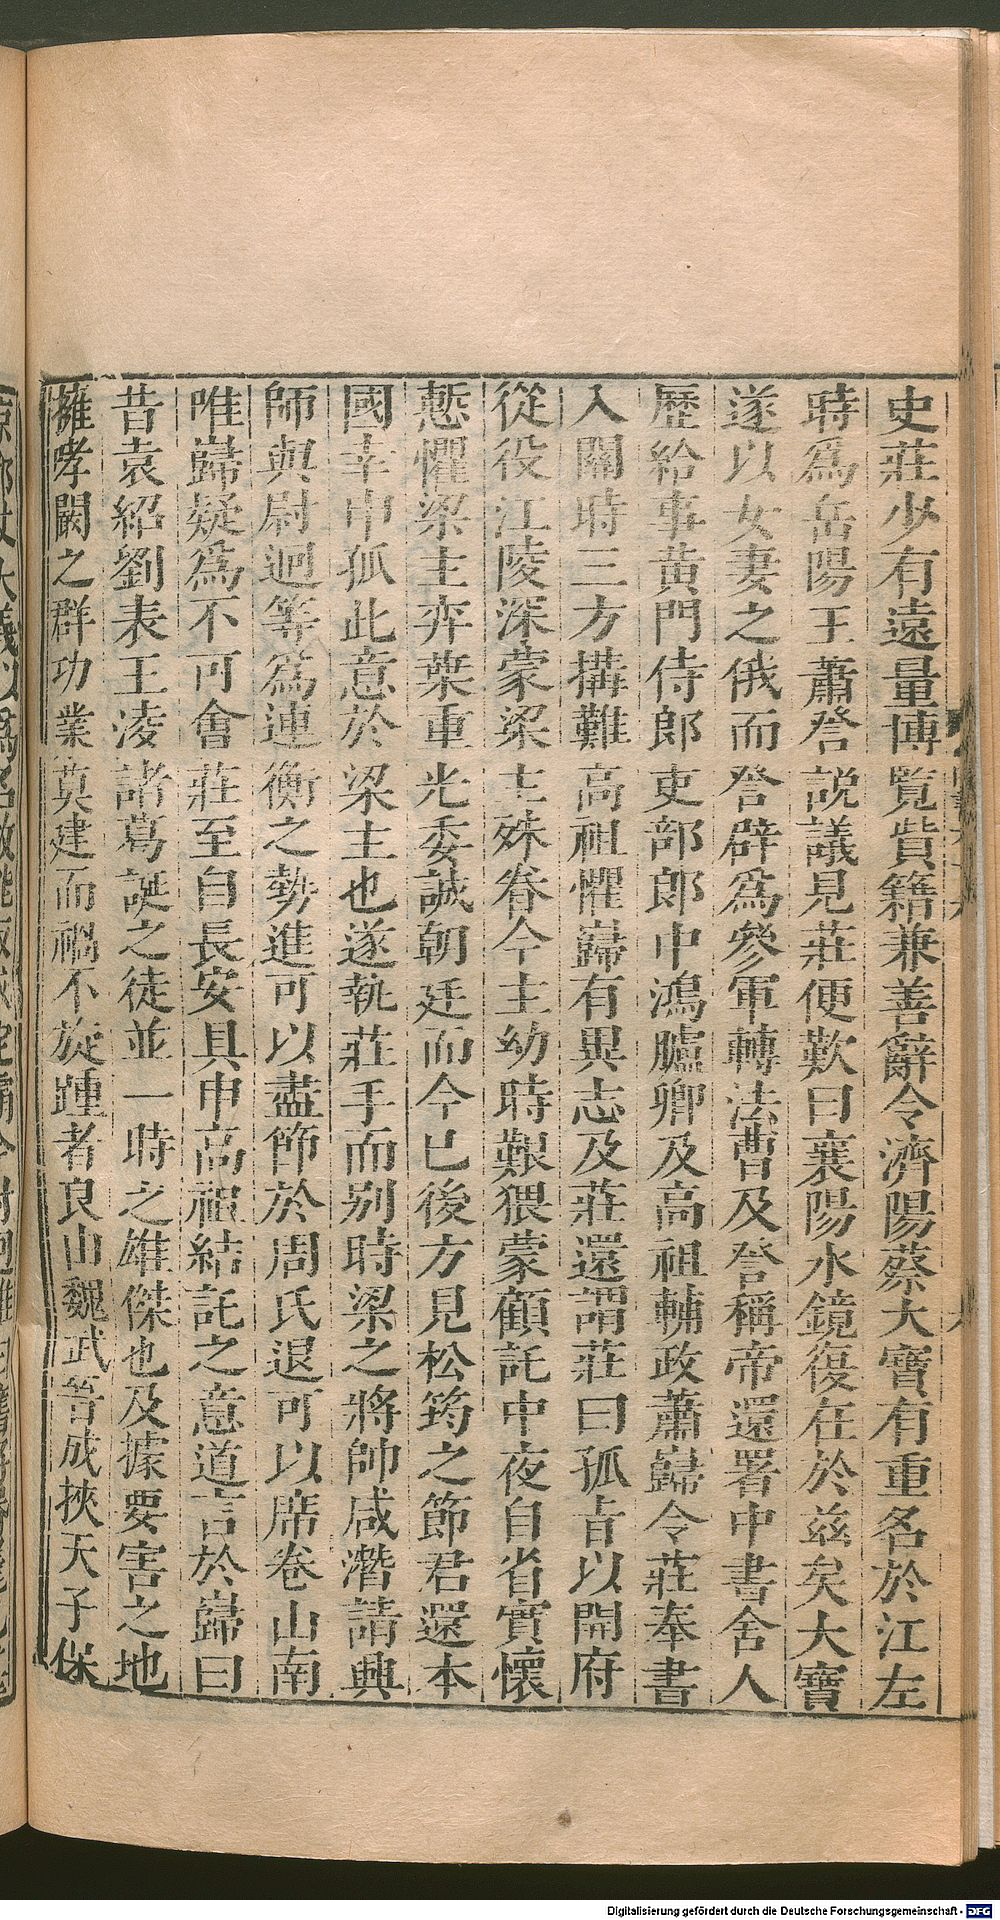 史莊少有遠量博覽賁籍兼善辭令濟陽蔡大寶有重名於江左
時爲岳陽王蕭詧說議見莊便歎曰襄陽水鏡復在於兹矣大寶
遂以女妻之俄而詧辟爲參軍轉法曹及詧稱帝還署中書舍人
歷給事黄門侍郎吏部郎中鴻臚卿及高祖輔政蕭巋令莊奉書
入關時三方搆難高祖懼巋有異志及莊還謂莊曰孤昔以開府
從役江陵深蒙梁主殊眷今主幼時艱猥蒙顧託中夜自省實懷
慙懼梁主弈葉重光委誠朝廷而今已後方見松筠之節君還本
國幸申孤此意於梁主也遂執莊手而别時梁之將帥咸潛請興
師與尉迥等爲連衡之勢進可以盡節於周氏退可以席卷山南
唯巋疑爲不可會莊至自長安具申高祖結託之意遂言於巋曰
昔袁紹劉表王凌諸葛誕之徒並一時之雄傑也及據要害之地
擁哮闞之群功業莫建而禍不旋踵者良由魏武晉成挾天子保
Digitalisierung gefördert durch die Deutsche Forschungsgemeinschaft - DFG